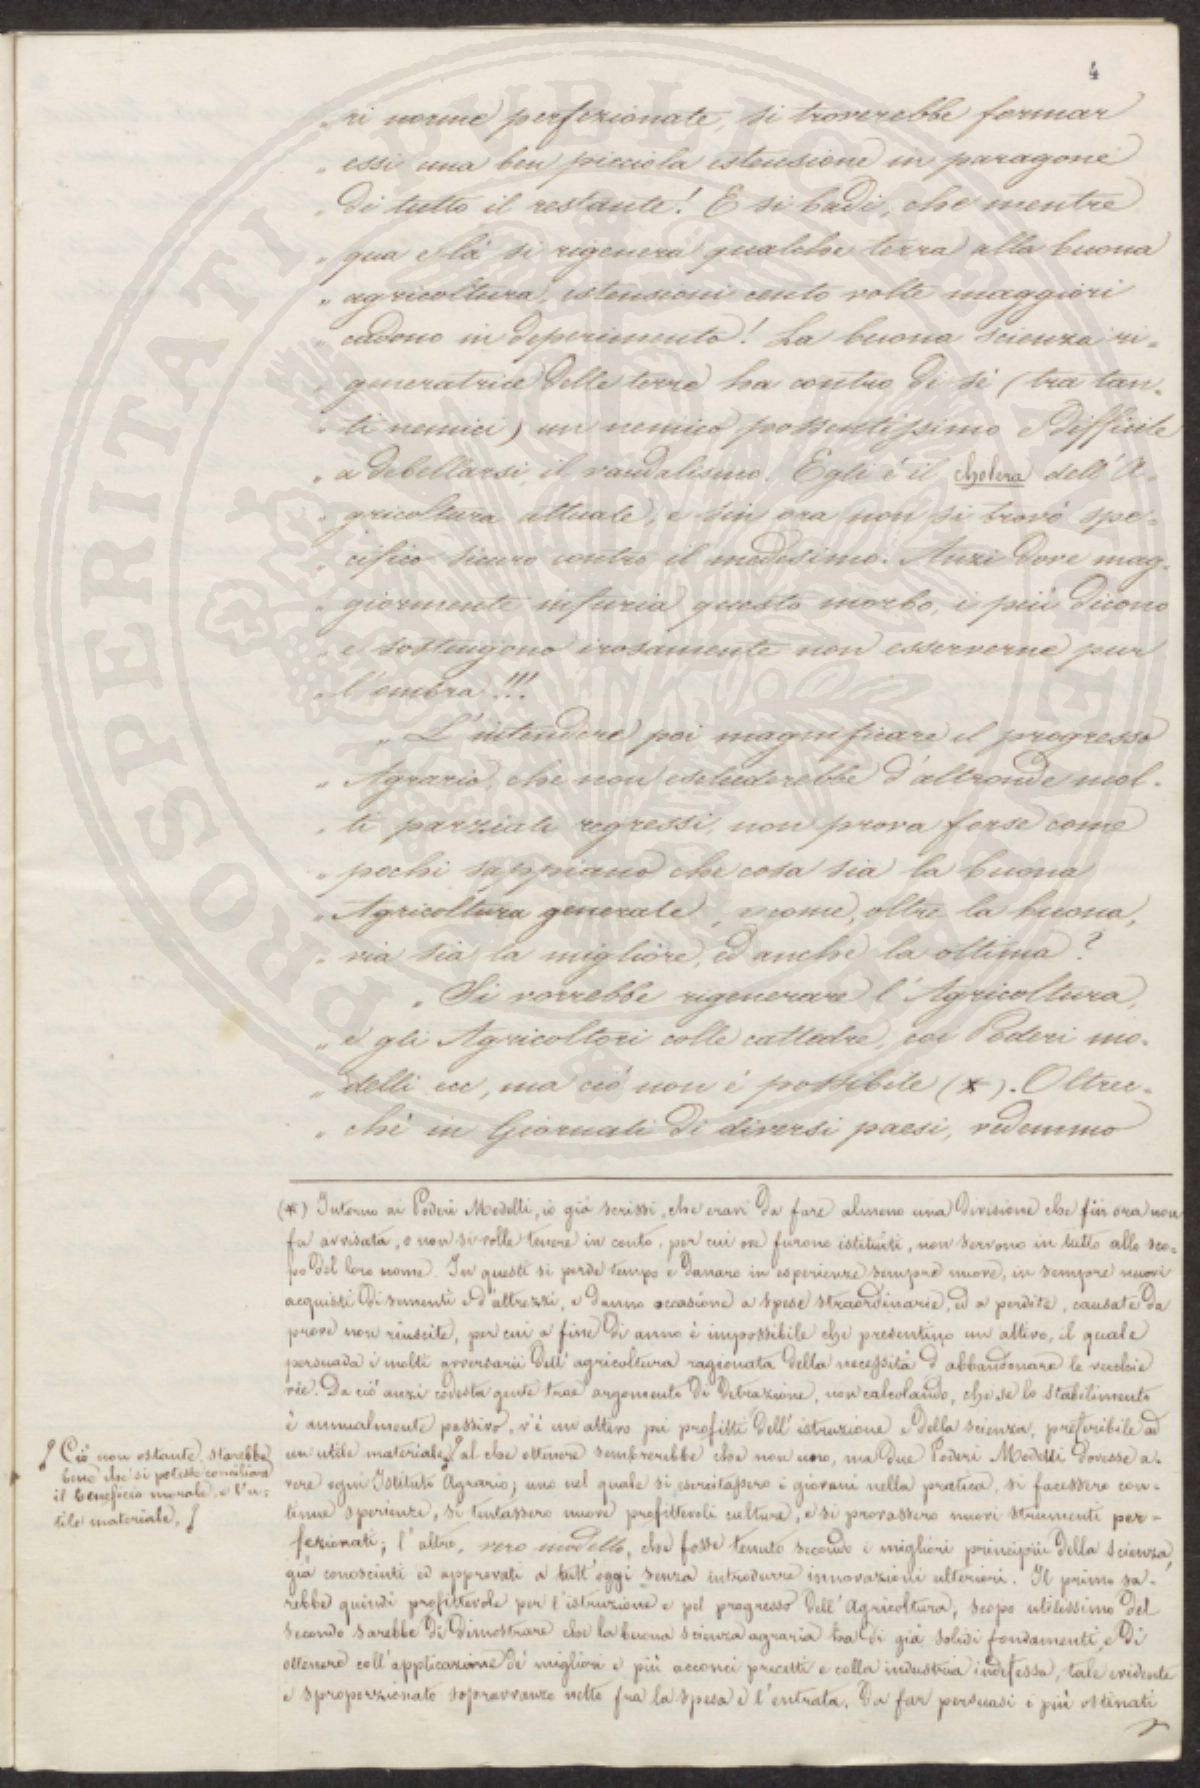 4
„ ri norme perfezionate, si troverebbe formar
„ essi una ben picciola estensione in paragone
„ di tutto il restante! E si badi, che mentre
„ qua e là si rigenera qualche terra alla buona
„ agricoltura, estensioni cento volte maggiori
„ cadono in deperimento! La buona scienza ri-
„ generatrice delle terre ha contro di sè (tra tan-
„ ti nemici) un nemico possentissimo e difficile
„ a debellarsi, il vandalismo. Egli è il cholera dell'A-
„ gricoltura attuale, e sin ora non si trovò spe-
„ cifico sicuro contro il medesimo. Anzi dove mag-
„ giormente infuria questo morbo, i più dicono
„ e sostengono irosamente non esserverne pur
„ l'ombra!!!
„ L'intendere poi magnificare il progresso
„ Agrario, che non escluderebbe d'altronde mol-
„ ti parziali regressi, non prova forse come
„ pochi sappiano che cosa sia la buona
„ Agricoltura generale, e come, oltre la buona,
„ via sia la migliore, ed anche la ottima?
„ Si vorrebbe rigenerare l'Agricoltura,
„ e gli Agricoltori colle cattedre, coi Poderi mo-
„ delli ecc, ma ciò non è possibile (*). Oltrec-
„ chè in Giornali di diversi paesi, vedemmo
(*) Intorno ai Poderi Modelli, io già scrissi, che eravi da fare almeno una divisione che fin ora non
fu avvisata, o non si volle tenere in conto, per cui ove furono istituiti, non servono in tutto allo sco-
po del loro nome. In questi si perde tempo e danaro in esperienze sempre nuove, in sempre nuovi
acquisti di sementi e d'attrezzi, e danno occasione a spese straordinarie, ed a perdite, causate da
prove non riuscite, per cui a fine di anno è impossibile che presentino un attivo, il quale
persuada i molti avversarii dell'agricoltura ragionata della necessità d'abbandonare le vecchie
vie. Da ciò anzi codesta gente trae argomento di detrazione, non calcolando, che se lo stabilimento
è annualmente passivo, v'è un attivo pei profitti dell'istruzione e della scienza, preferibile ad
un utile materiale, al che ottenere sembrerebbe che non uno, ma due Poderi Modelli dovesse a-
vere ogni Istituto Agrario; uno nel quale si esercitassero i giovani nella pratica, si facessero con-
tinue sperienze, si tentassero nuove profittevoli culture, e si provassero nuovi strumenti per-
fezionati; l'altro, vero modello, che fosse tenuto secondo i migliori principii della scienza
già conosciuti ed approvati a tutt'oggi senza introdurre innovazioni ulteriori. Il primo sa-
rebbe quindi profittevole per l'istruzione e pel progresso dell'Agricoltura; scopo utilissimo del
secondo sarebbe di dimostrare che la buona scienza agraria ha di già solidi fondamenti, e di
ottenere coll'applicazione de' migliori e più acconci precetti e colla industria indefessa, tale evidente
e sproporzionato sopravvanzo netto fra la spesa e l'entrata, da far persuasi i più ostinati
Ciò non ostante, starebbe
bene che si potesse conciliare
il beneficio morale, e l'u-
tile materiale,